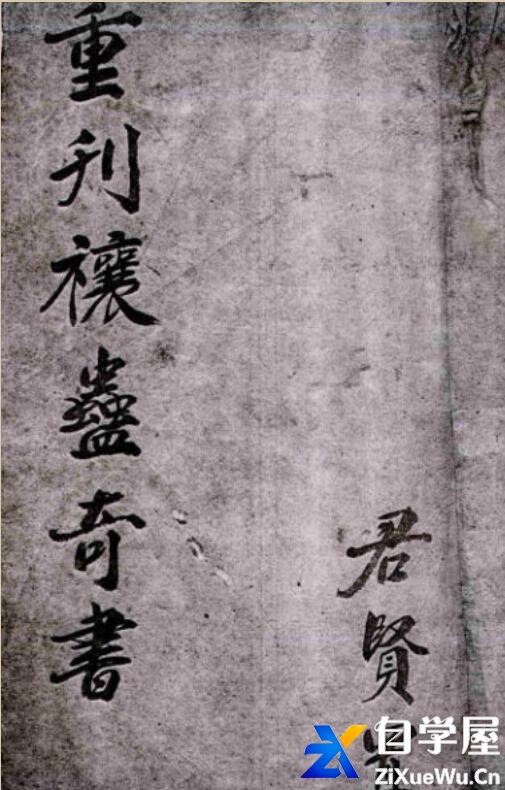 重刋禳蠱奇書
君賢
自学屋
ZiXueWu.Cn